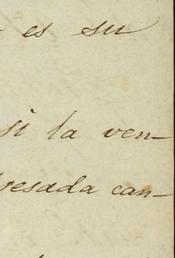 es su
si la ven-
resada can-